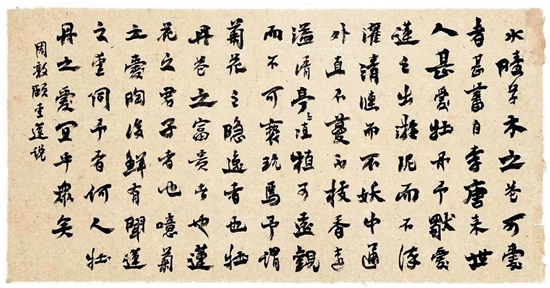 水陸草木之花可愛
者甚蕃自李唐来世
人甚愛牡丹予獨愛
蓮之出淤泥而不染
濯清漣而不妖中通
外直不蔓不枝香遠
溢清亭〻淨植可遠觀
而不可褻玩焉予謂
菊花之隐逸者也牡
丹花之富貴者也蓮
花之君子者也噫菊
之愛陶後鮮有聞蓮
之愛同予者何人牡
丹之愛宜乎衆矣
周敦頤愛蓮説